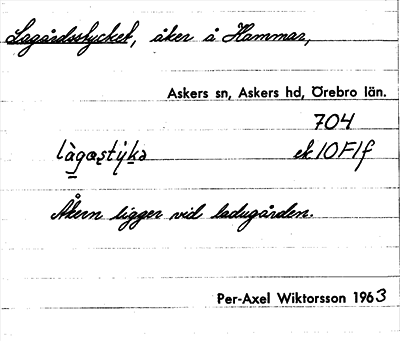 Lagårdsstycket, åker å Hammar,
Askers sn, Askers hd, Örebro län.
704
làgɷstýkə ek 10F1f
Åkern ligger vid ladugården.
Per-Axel Wiktorsson 1963